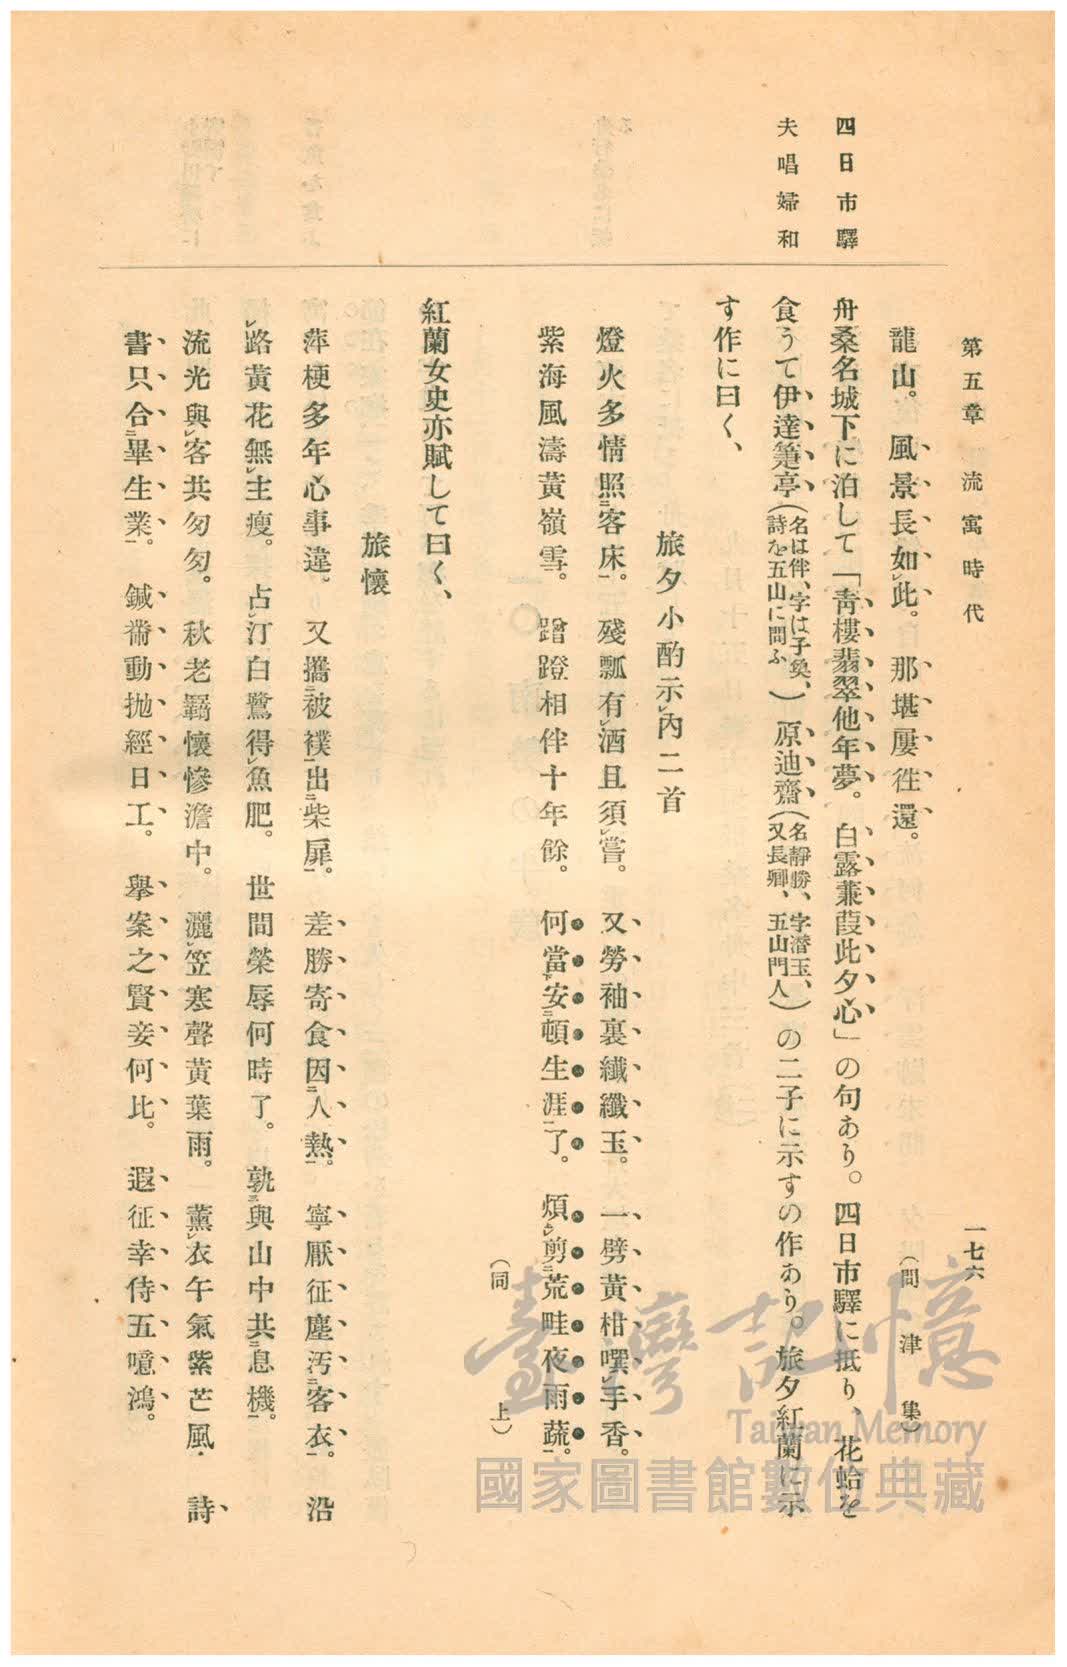 第五章 流寓時代
一七六
四日市驛
夫唱婦和
龍山。風景長如㆑此。那堪屢徃還。
（問津集）
舟桑名城下に泊して「靑樓翡翠他年夢。白露蒹葭此夕心」の句あり。四日市驛に抵り、花蛤を
食うて伊達箑亭（名は伴、字は子奐、詩を五山に問ふ、）原迪齋（名靜勝、字潛玉、又長卿、五山門人）の二子に示すの作あり。旅夕紅蘭に示
す作に曰く、
旅夕小酌示㆑內二首
燈火多情照㆓客床㆒。殘瓢有㆑酒且須㆑嘗。又勞袖裏纖纖玉。一劈黃柑噀㆑手香。
紫海風濤黃嶺雪。蹭蹬相伴十年餘。何當㆘安㆓頓生涯㆒了。煩㆑剪㆓荒畦夜雨蔬㆒。
（同上）
紅蘭女史亦賦して曰く、
旅懷
萍梗多年心事違。又攜㆓被襆㆒出㆓柴扉㆒。差勝寄食因㆓人熱㆒。寧厭征塵汚㆓客衣㆒。沿
㆑路黃花無㆑主瘦。占㆑汀白鷺得㆑魚肥。世間榮辱何時了。孰㆘與山中共㆓息機㆒。
流光與㆑客共匆匆。秋老羈懷慘澹中。灑㆑笠寒聲黃葉雨。薰㆑衣午氣紫芒風。詩
書只合㆓畢生業㆒。鍼黹動拋經日工。舉案之賢妾何比。遐征幸侍五噫鴻。
臺灣記憶
Taiwan Memory
國家圖書館數位典藏